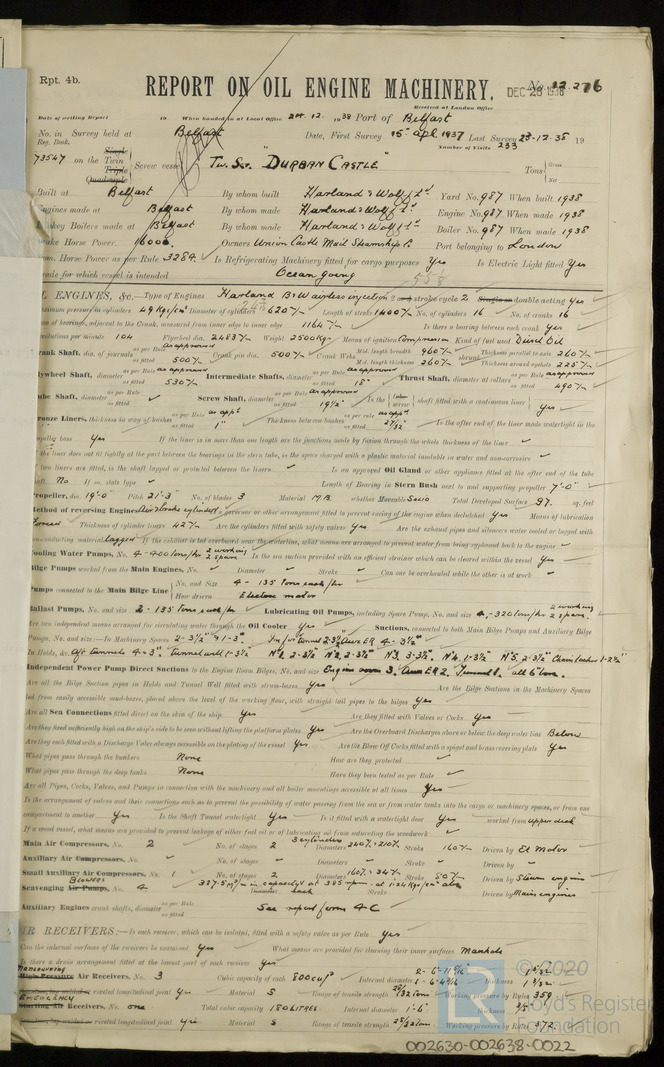 Rpt. 4b.
REPORT ON OIL ENGINE MACHINERY.
No. 12276
DEC 28 1938
Received at London Office
Date of writing Report 19 When handed in at Local Office 24. 12. 1938 Port of Belfast
No. in Survey held at Belfast Date, First Survey 15 Apl 1937 Last Survey 23-12-38 19
Reg. Book. Number of Visits 233
73547 on the Single Twin Triple Quadruple Screw vessel Tw. Scr. "DURBAN CASTLE" Tons Gross Net
Built at Belfast By whom built Harland & Wolff Ld Yard No. 987 When built 1938
Engines made at Belfast By whom made Harland & Wolff Ld Engine No. 987 When made 1938
Donkey Boilers made at Belfast By whom made Harland & Wolff Ld Boiler No. 987 When made 1938
Brake Horse Power 16000. Owners Union Castle Mail Steamship Co Port belonging to London
Nom. Horse Power as per Rule 3284 Is Refrigerating Machinery fitted for cargo purposes Yes Is Electric Light fitted Yes
Trade for which vessel is intended Ocean going
OIL ENGINES, &c.—Type of Engines Harland B&W airless injection 2 or 4 stroke cycle 2 Single or double acting Yes
Maximum pressure in cylinders 49 Kgs/cm² Diameter of cylinders 620 m/m Length of stroke 1400 m/m No. of cylinders 16 No. of cranks 16
Span of bearings, adjacent to the Crank, measured from inner edge to inner edge 1164 Is there a bearing between each crank Yes
Revolutions per minute 104 Flywheel dia. 2483 Weight 2500 Kgs Means of ignition Compression Kind of fuel used Diesel Oil
Crank Shaft, dia. of journals as per Rule as approved as fitted 500 Crank pin dia. 500 Crank Webs Mid. length breadth 960 Mid. length thickness 260 shrunk Thickness parallel to axis 260 Thickness around eyehole 225
Flywheel Shaft, diameter as per Rule as approved as fitted 530 Intermediate Shafts, diameter as per Rule as approved as fitted 18" Thrust Shaft, diameter at collars as per Rule as approved as fitted 490
Tube Shaft, diameter as per Rule as fitted Screw Shaft, diameter as per Rule as approved as fitted 19½" Is the tube screw shaft fitted with a continuous liner Yes
Bronze Liners, thickness in way of bushes as per Rule as appd as fitted 1" Thickness between bushes as per rule as appd as fitted 27/32" Is the after end of the liner made watertight in the
propeller boss Yes If the liner is in more than one length are the junctions made by fusion through the whole thickness of the liner
If the liner does not fit tightly at the part between the bearings in the stern tube, is the space charged with a plastic material insoluble in water and non-corrosive
If two liners are fitted, is the shaft lapped or protected between the liners Is an approved Oil Gland or other appliance fitted at the after end of the tube
shaft No If so, state type Length of Bearing in Stern Bush next to and supporting propeller 7'-0"
Propeller, dia. 19'-0" Pitch 21'-3" No. of blades 3 Material M.B. whether Moveable Solid Total Developed Surface 97. sq. feet
Method of reversing Engines Is a governor or other arrangement fitted to prevent racing of the engine when declutched Yes Means of lubrication
Forced Thickness of cylinder liners 42 Are the cylinders fitted with safety valves Yes Are the exhaust pipes and silencers water cooled or lagged with
non-conducting material lagged If the exhaust is led overboard near the waterline, what means are arranged to prevent water from being syphoned back to the engine
Cooling Water Pumps, No. 4 - 400 tons/hr 2 working 2 spare Is the sea suction provided with an efficient strainer which can be cleared within the vessel Yes
Bilge Pumps worked from the Main Engines, No. Diameter Stroke Can one be overhauled while the other is at work
Pumps connected to the Main Bilge Line No. and Size 4 - 135 tons each/hr How driven Electric motor
Ballast Pumps, No. and size 2 - 135 tons each/hr Lubricating Oil Pumps, including Spare Pump, No. and size 4 - 320 tons/hr 2 working 2 spare
Are two independent means arranged for circulating water through the Oil Cooler Yes Suctions, connected to both Main Bilge Pumps and Auxiliary Bilge
Pumps, No. and size:—In Machinery Spaces
In Holds, &c.
Independent Power Pump Direct Suctions to the Engine Room Bilges, No. and size Engine room 3. Aux ER 2.
Are all the Bilge Suction pipes in Holds and Tunnel Well fitted with strum-boxes Yes Are the Bilge Suctions in the Machinery Spaces
led from easily accessible mud-boxes, placed above the level of the working floor, with straight tail pipes to the bilges Yes
Are all Sea Connections fitted direct on the skin of the ship Yes Are they fitted with Valves or Cocks Yes
Are they fixed sufficiently high on the ship's side to be seen without lifting the platform plates Yes Are the Overboard Discharges above or below the deep water line Below
Are they each fitted with a Discharge Valve always accessible on the plating of the vessel Yes Are the Blow Off Cocks fitted with a spigot and brass covering plate Yes
What pipes pass through the bunkers None How are they protected
What pipes pass through the deep tanks None Have they been tested as per Rule
Are all Pipes, Cocks, Valves, and Pumps in connection with the machinery and all boiler mountings accessible at all times Yes
Is the arrangement of valves and their connections such as to prevent the possibility of water passing from the sea or from water tanks into the cargo or machinery spaces, or from one
compartment to another Yes Is the Shaft Tunnel watertight Yes Is it fitted with a watertight door Yes worked from Upper deck
If a wood vessel, what means are provided to prevent leakage of either fuel oil or of lubricating oil from saturating the woodwork
Main Air Compressors, No. 2 No. of stages 2 Diameters Stroke 160 Driven by El Motor
Auxiliary Air Compressors, No. No. of stages Diameters Stroke Driven by
Small Auxiliary Air Compressors, No. 1 No. of stages 2 Diameters Stroke 50 Driven by Steam engine
Scavenging Air Pumps, Blowers No. 4 Diameter Stroke Driven by Main engines
Auxiliary Engines crank shafts, diameter as per Rule as fitted See report form 4 C
AIR RECEIVERS:—Is each receiver, which can be isolated, fitted with a safety valve as per Rule Yes
Can the internal surfaces of the receivers be examined Yes What means are provided for cleaning their inner surfaces Manhole
Is there a drain arrangement fitted at the lowest part of each receiver Yes
MANOEUVRING
High Pressure Air Receivers, No. 3 Cubic capacity of each 800 cu ft Internal diameter thickness
Seamless, lap welded or riveted longitudinal joint Yes Material S Range of tensile strength Working pressure by Rules 359
EMERGENCY
Starting Air Receivers, No. one Total cubic capacity 180 LITRES Internal diameter 1'-6" thickness
Seamless, lap welded or riveted longitudinal joint Yes Material S Range of tensile strength Working pressure by Rules 372
© 2020
Lloyd's Register
Foundation
002630-002638-0022